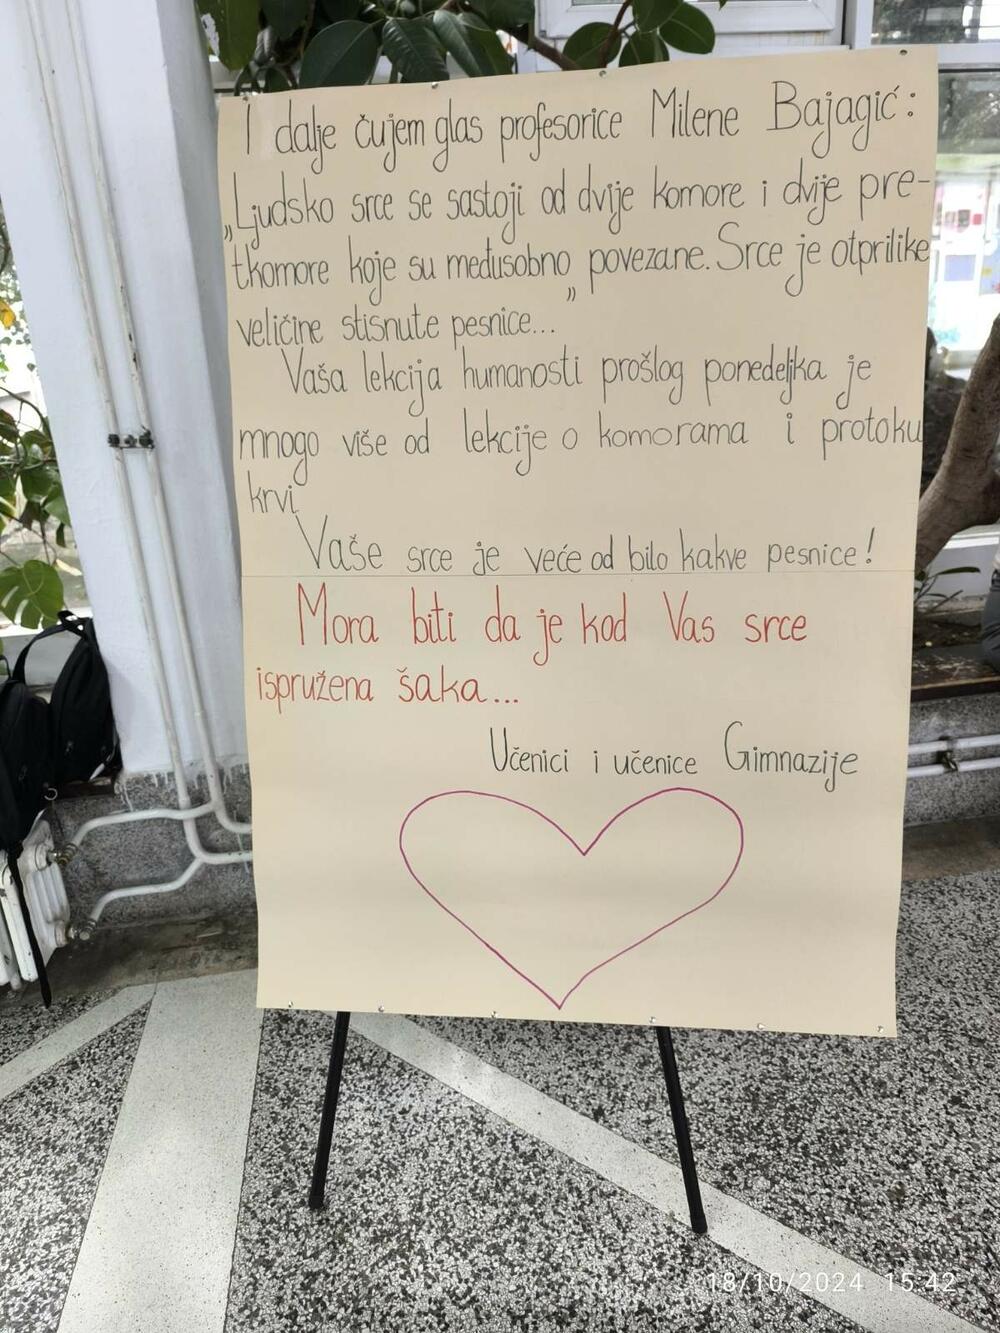 I dalje čujem glas profesorice Milene Bajagić:
„Ljudsko srce se sastoji od dvije komore i dvije pre-
tkomore koje su međusobno povezane. Srce je otprilike
veličine stisnute pesnice...”
Vaša lekcija humanosti prošlog ponedeljka je
mnogo više od lekcije o komorama i protoku
krvi
Vaše srce je veće od bilo kakve pesnice!
Mora biti da je kod Vas srce
ispružena šaka...
Učenici i učenice Gimnazije
18/10/2024 15:42